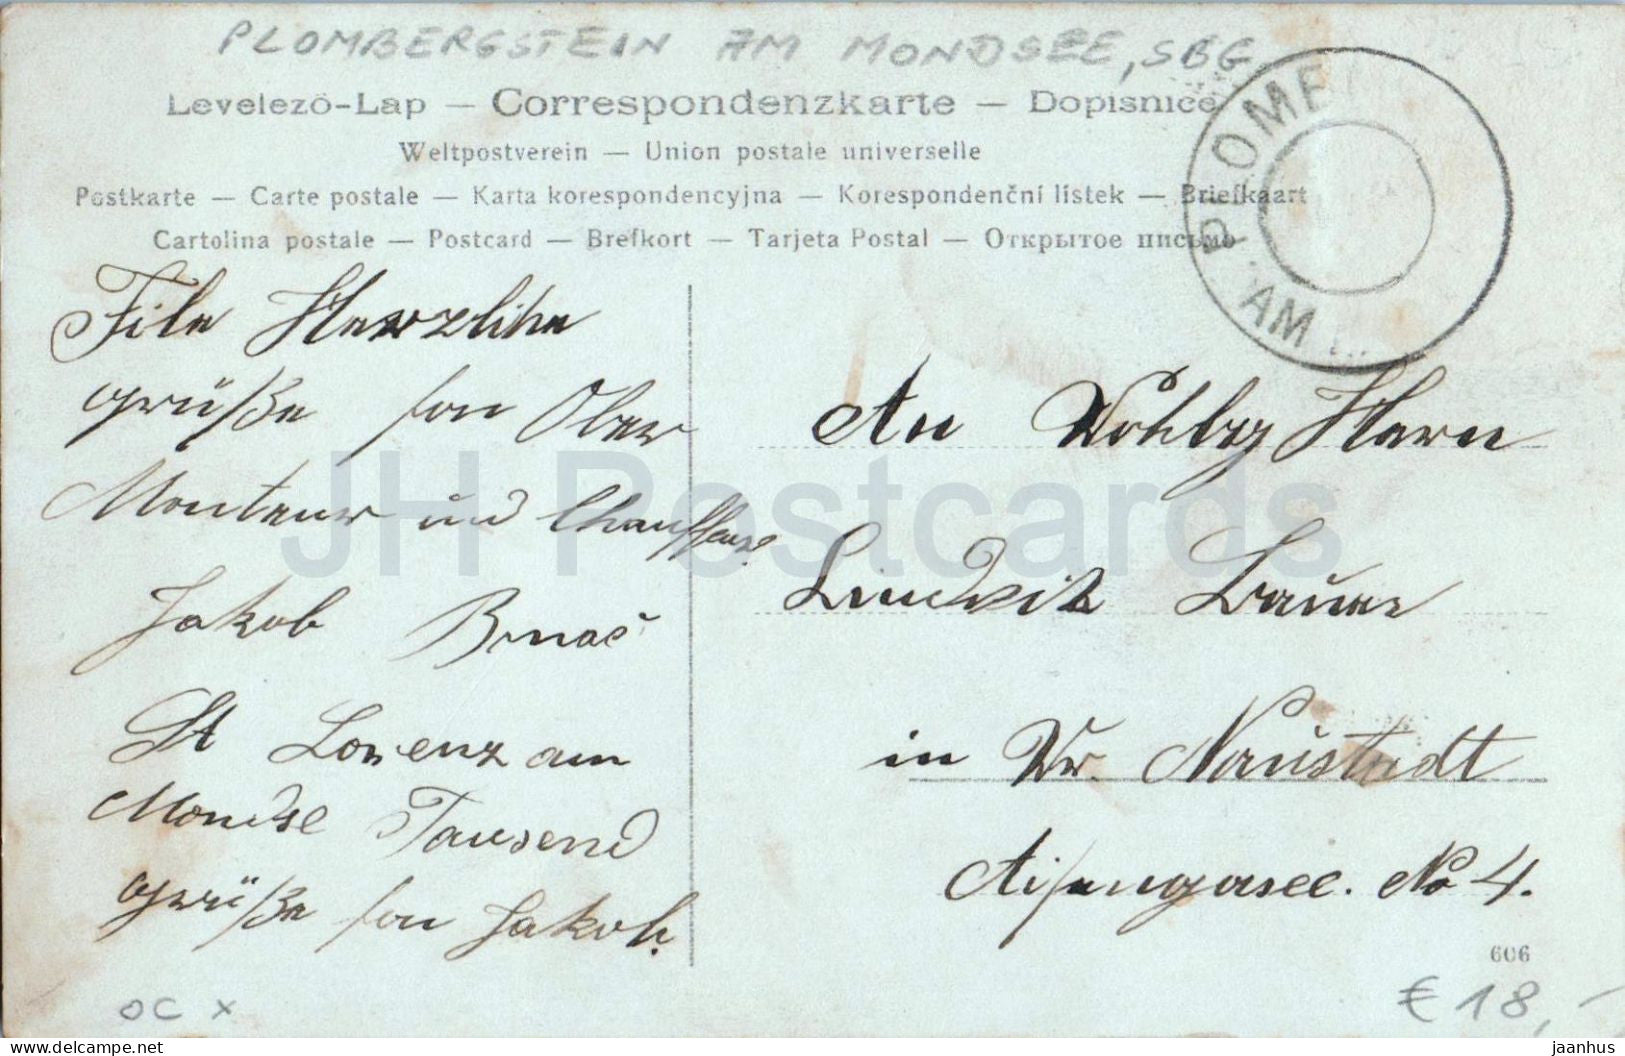 PLOMBERGSTEIN AM MONDSEE, SBG
Levelező-Lap — Correspondenzkarte — Dopisnice
Weltpostverein — Union postale universelle
Postkarte — Carte postale — Karta korespondencyjna — Korespondenční lístek — Briefkaart
Cartolina postale — Postcard — Brefkort — Tarjeta Postal — Открытое письмо
PLOMB
AM
File Herzlihe
grüße fon Ober
Monteur und Chauffeur
Jakob
St Lorenz am
Mondse Tausend
grüße fon Jakob.
An Wohlbg Hern
Ludvik Bauer
in Wr. Neustadt
No 4.
606
OC x
€ 18,-
JH Postcards
delcampe.net
jaanhus